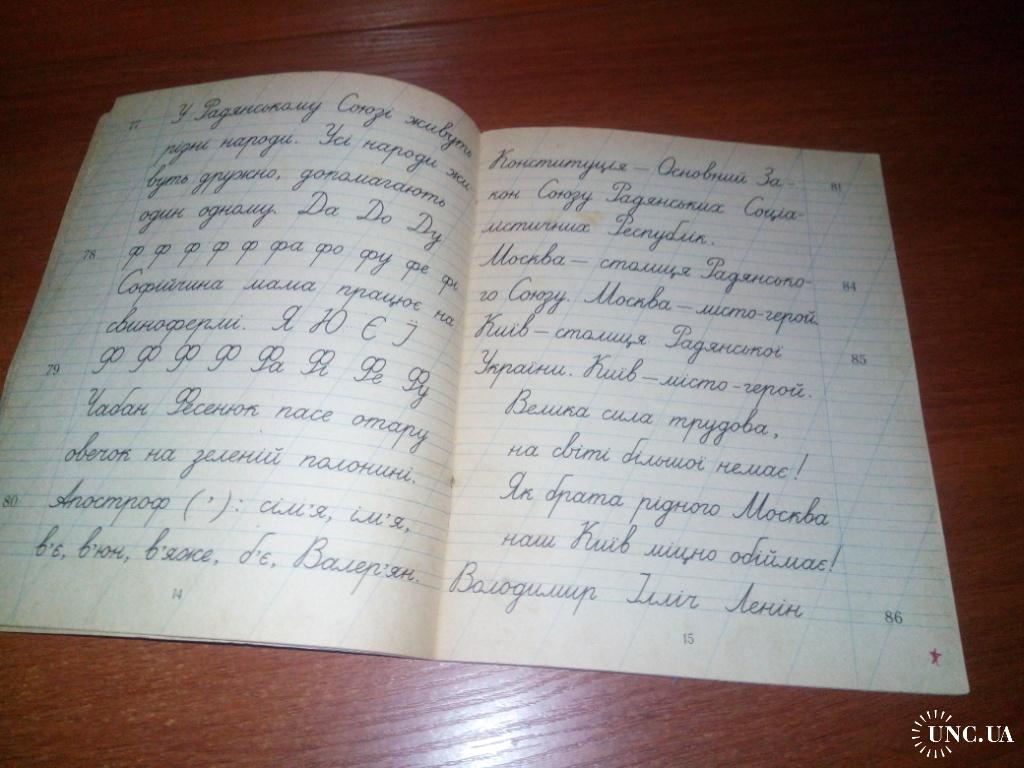 77 У Радянському Союзі живуть
різні народи. Усі народи жи-
вуть дружно, допомагають
один одному. Да До Ду
78 ф ф ф ф ф фа фо фу фе фі
Софійчина мама працює на
свинофермі. Я Ю Є Ї
79 Ф Ф Ф Ф Фа Фі Фе Фу
Чабан Фесенюк пасе отару
овечок на зеленій полонині.
80 Апостроф ( ' ): сім'я, ім'я,
в'є, в'юн, в'яже, б'є, Валер'ян.
14
Конституція — Основний За- 81
кон Союзу Радянських Соціа-
лістичних Республік.
Москва — столиця Радянсько- 84
го Союзу. Москва — місто-герой.
Київ — столиця Радянської 85
України. Київ — місто-герой.
Велика сила трудова,
на світі більшої немає!
Як брата рідного Москва
наш Київ міцно обіймає!
Володимир Ілліч Ленін 86
15
UNC.UA